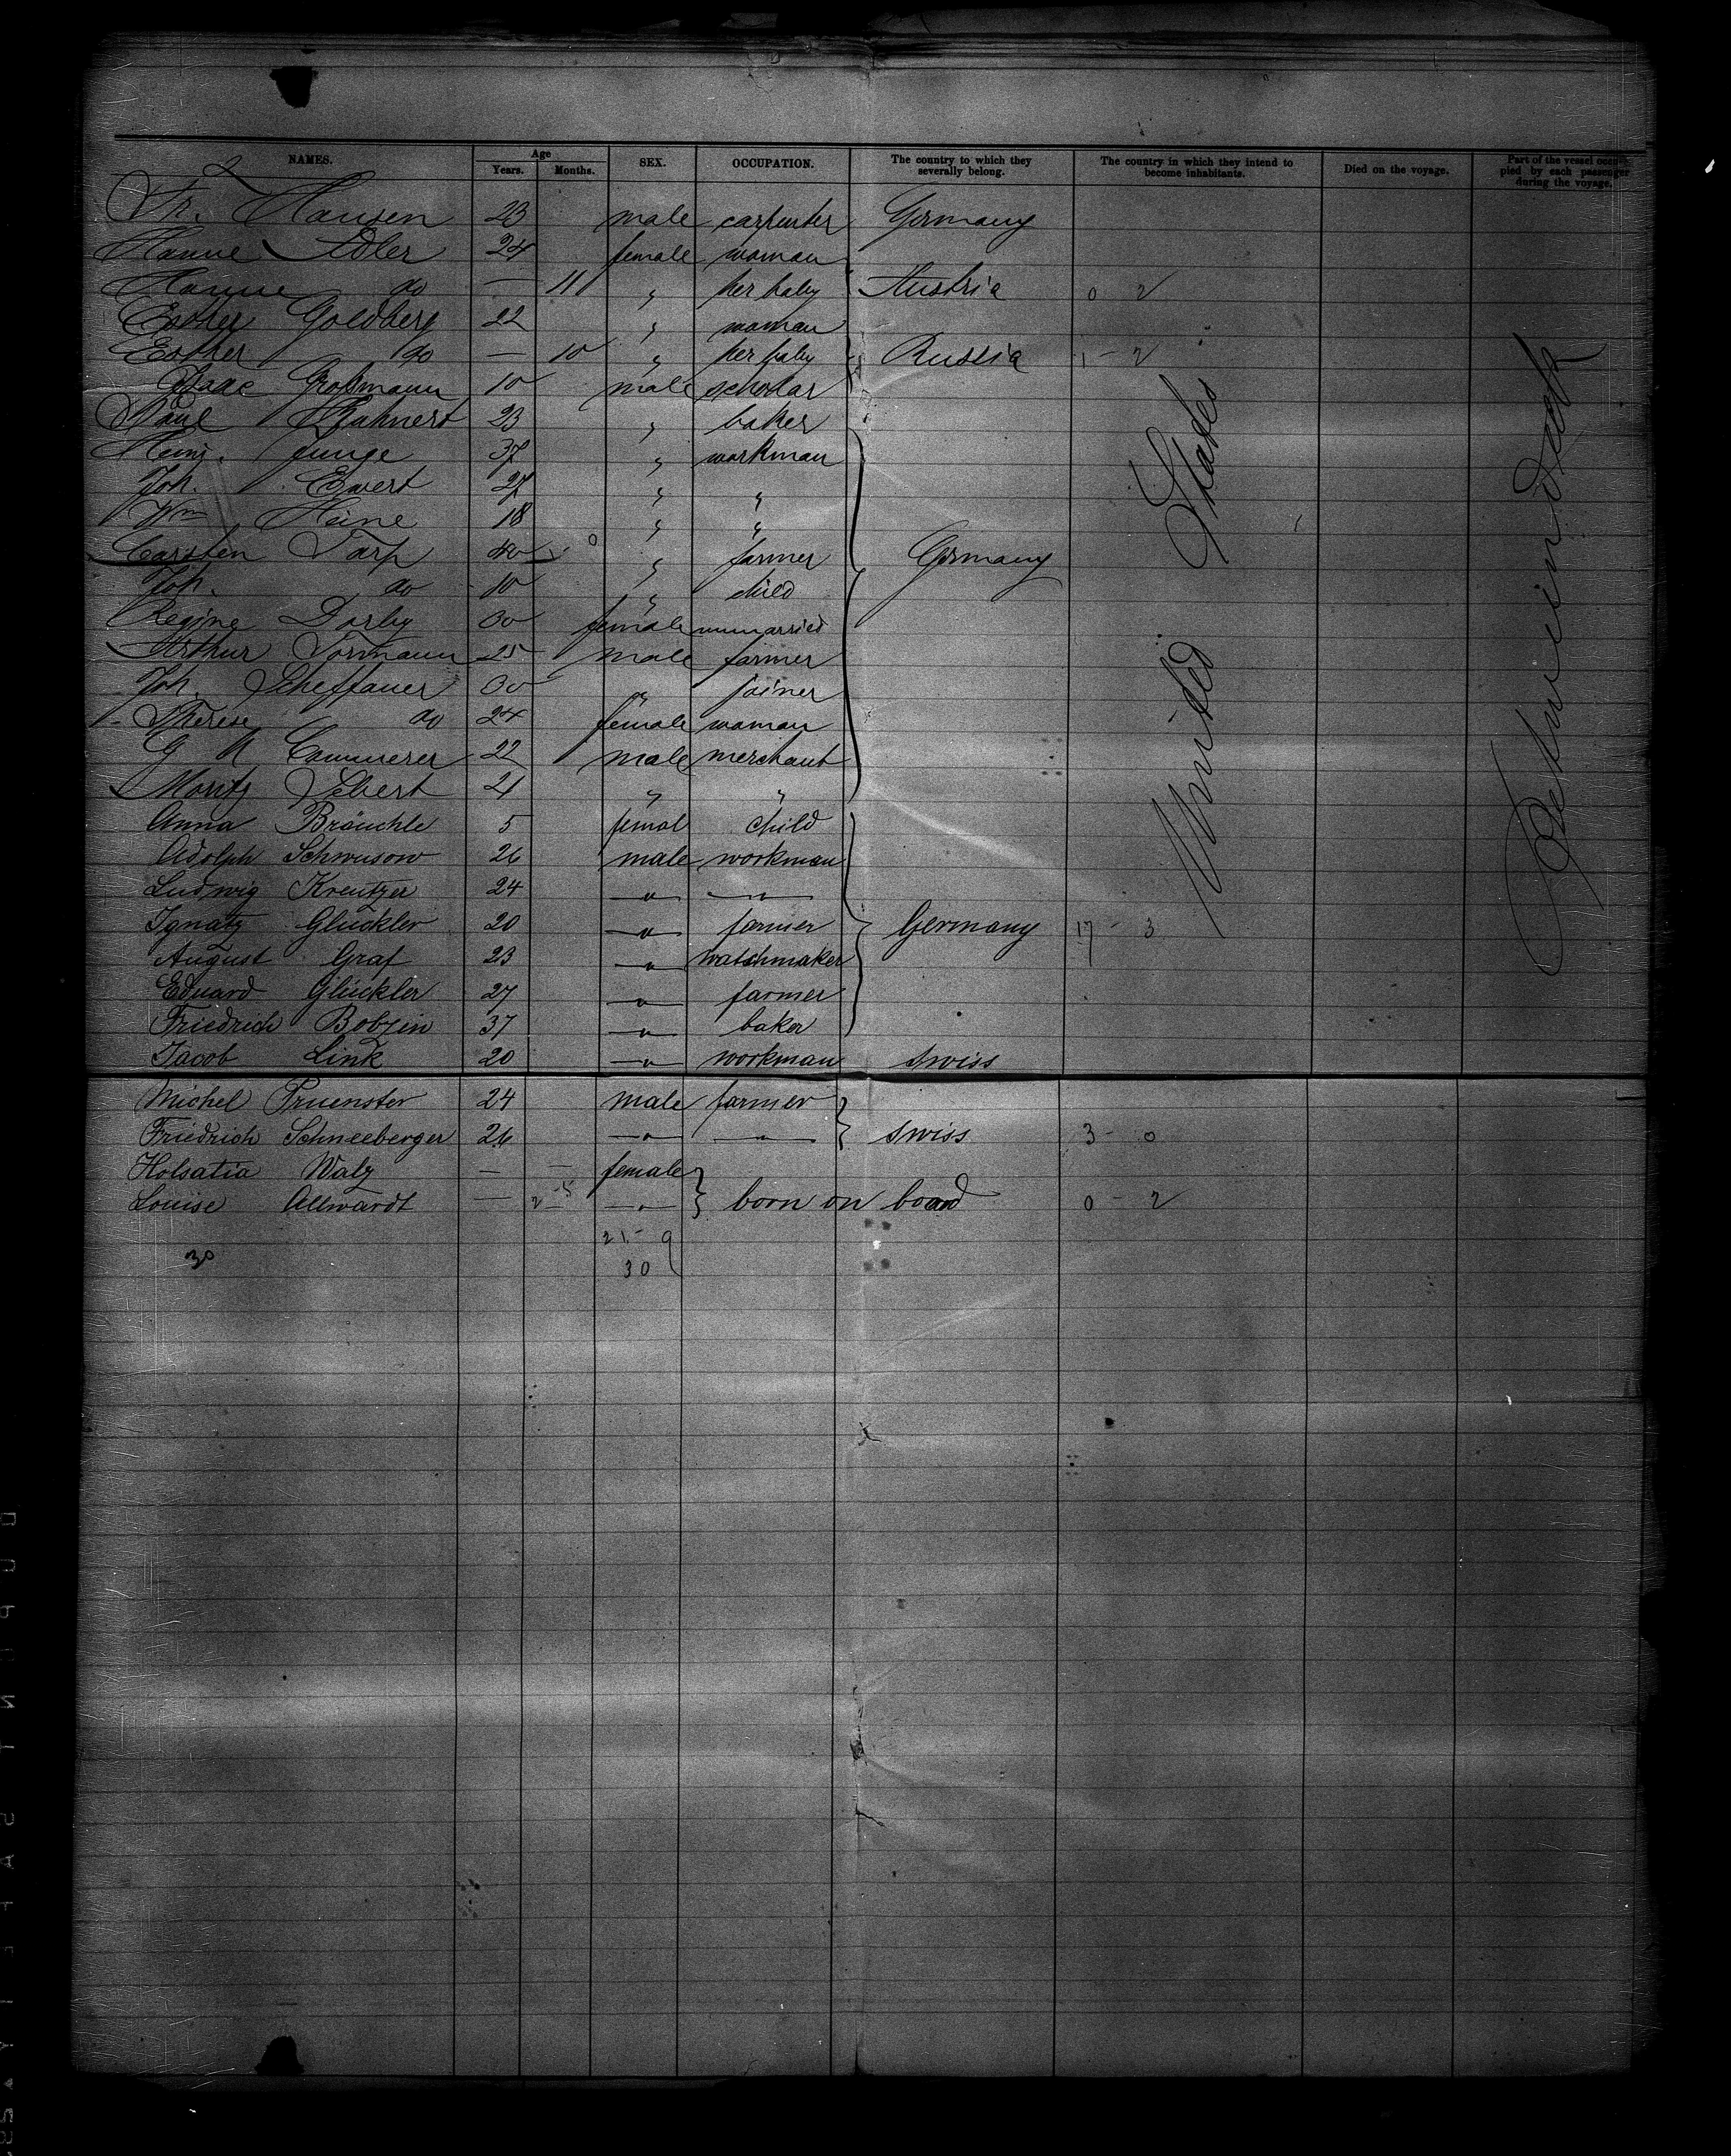 NAMES. Age SEX. OCCUPATION. The country to which they severally belong. The country in which they intend to become inhabitants. Died on the voyage. Part of the vessel occupied by each passenger during the voyage.
Years. Months.
2
Fr. Hansen 23 male carpenter Germany
Hanne Adler 24 female woman
Hanne do — 11 " her baby Austria 0 2
Esther Goldberg 22 " woman
Esther do — 10 " her baby Russia 1 - 2
Isaac Großmann 10 male scholar
Paul 23 " baker
Heinr. Junge 37 " workman
Joh. Ewert 27 " "
Wm Heine 18 " "
Carsten Tarp 40 " farmer Germany
Joh. do 10 " child
Regine Dorby 30 female unmarried
Arthur Tormann 25 male farmer
Joh. Scheffauer 30 " joiner
Therese do 24 female woman
G A Cammerer 22 male merchant
Moritz 21 " "
Anna Bräuchle 5 femal child
Adolph 26 male workman
Ludwig Kreutzer 24 —"— —"—
Ignatz Glückler 20 —"— farmer Germany 17 - 3
August Graf 23 —"— watchmaker
Eduard Glückler 27 —"— farmer
Friedrich Bobzin 37 —"— baker
Jacob Link 20 —"— workman swiss
United States
Between deck
Michel Pruenster 24 male farmer
Friedrich Schneeberger 26 —"— —"— swiss 3 - 0
Holsatia Walz — — female
Louise Allwardt — —"— born on board 0 - 2
21 - 9
30 30